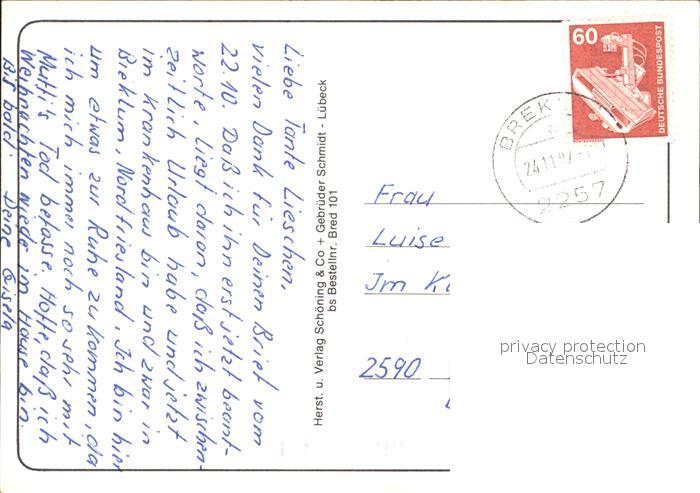 Liebe Tante Lieschen,
vielen Dank für Deinen Brief vom
22.10. Daß ich ihn erst jetzt beant-
worte, liegt daran, daß ich zwischen-
zeitlich Urlaub habe und jetzt
im Krankenhaus bin und zwar in
Breklum, Nordfriesland. Ich bin hier
um etwas zur Ruhe zu kommen, da
ich mich immer noch so sehr mit
Mutti's Tod befasse. Hoffe, daß ich
Weihnachten wieder im Hause bin.
Bis bald. Deine Gisela
Herst. u. Verlag Schöning & Co + Gebrüder Schmidt - Lübeck
bs Bestellnr. Bred 101
60
DEUTSCHE BUNDESPOST
BREK
24.11.8
2257
Frau
Luise
Im
2590
privacy protection
Datenschutz